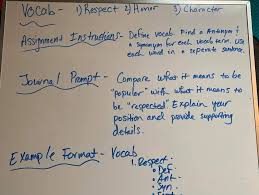 Vocab - 1) Respect 2) Honor 3) Character
Assignment Instructions - Define vocab Find a Antonym &
a Synonym for each vocab term. Use
each word in a seperate sentence.
Journal Prompt - Compare what it means to be
"popular" with what it means to
be "respected" Explain your
position and provide supporting
details.
Example Format - Vocab
1. Respect:
• Def
• Ant -
• Syn -